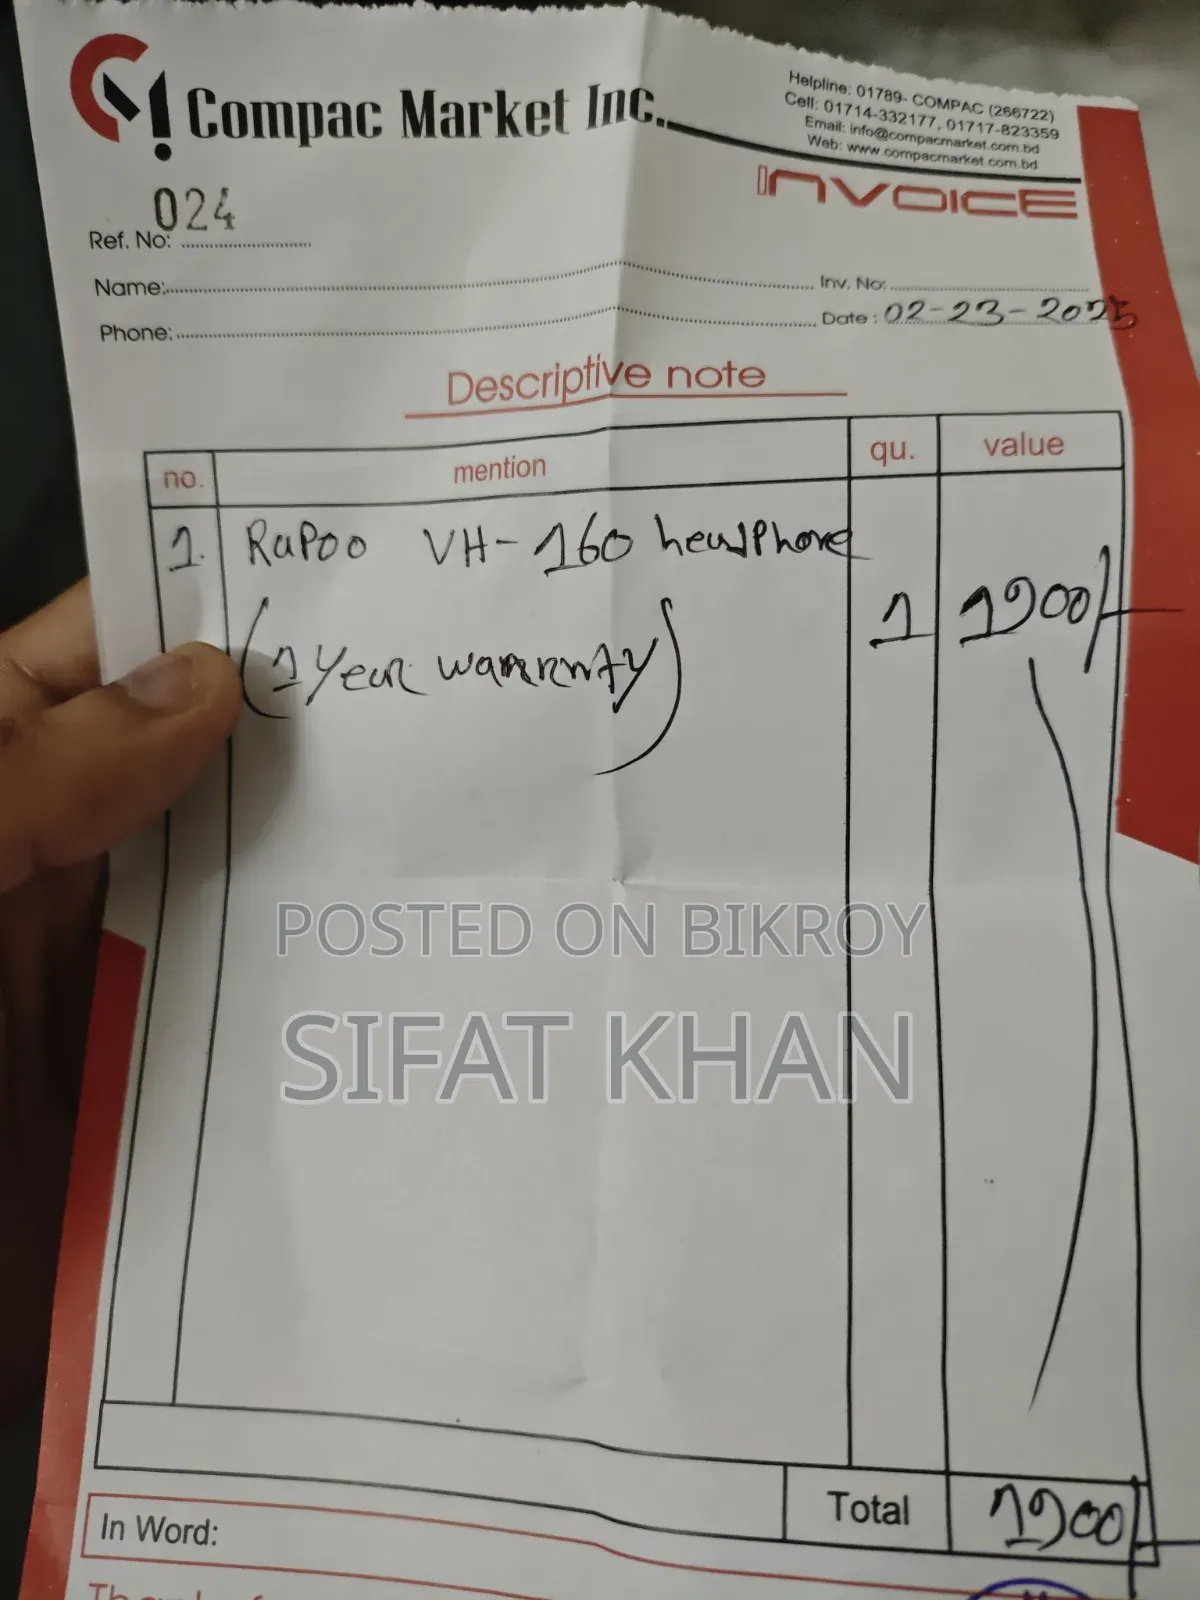 Compac Market Inc.
Helpline: 01789- COMPAC (266722)
Cell: 01714-332177, 01717-823359
Email: info@compacmarket.com.bd
Web: www.compacmarket.com.bd
INVOICE
024
Ref. No:
Name:
Inv. No:
Phone:
Date : 02-23-2025
Descriptive note
no. mention qu. value
1. Rapoo VH-160 headphone 1 1900/-
(1 Year warranty)
POSTED ON BIKROY
SIFAT KHAN
Total 1900/-
In Word: